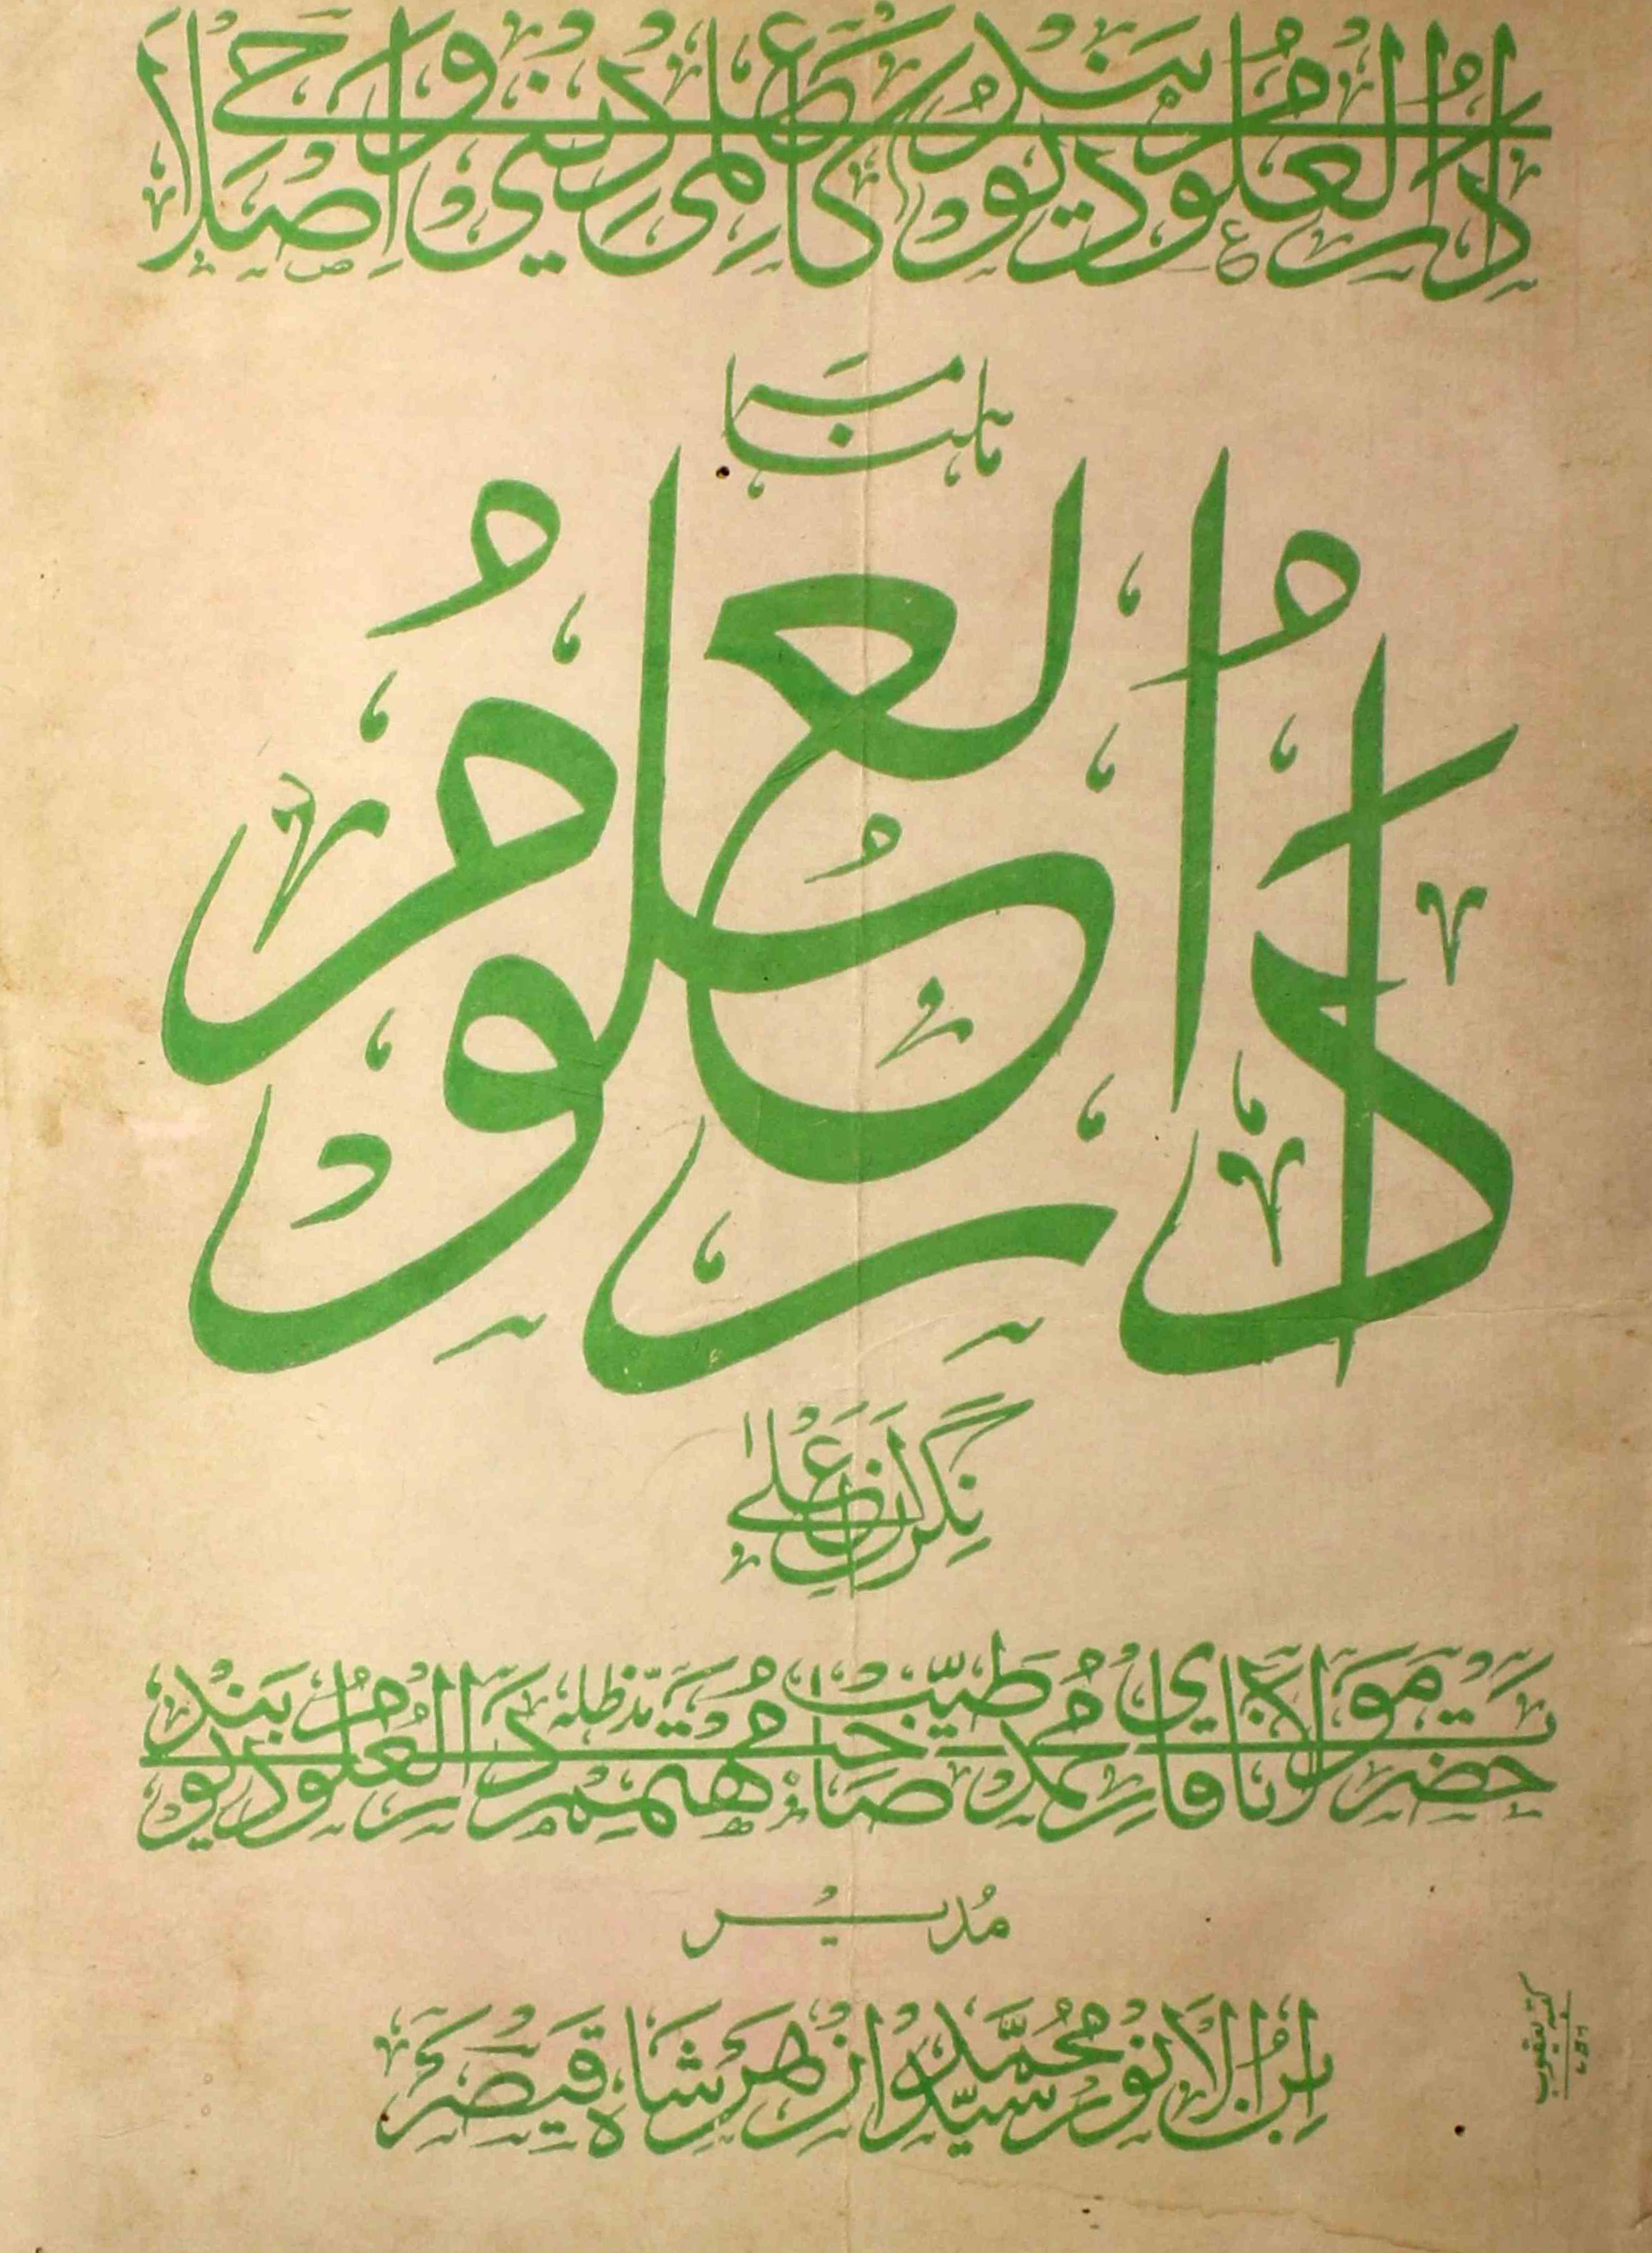 دارالعلوم دیوبند کا علمی دینی و اصلاحی
ماہنامہ
دارالعلوم
نگران اعلیٰ
حضرت مولانا قاری محمد طیب صاحب مدظلہ مہتمم دارالعلوم دیوبند
مدیر
ابن الانور سید محمد ازہر شاہ قیصر
کتبہ یعقوب